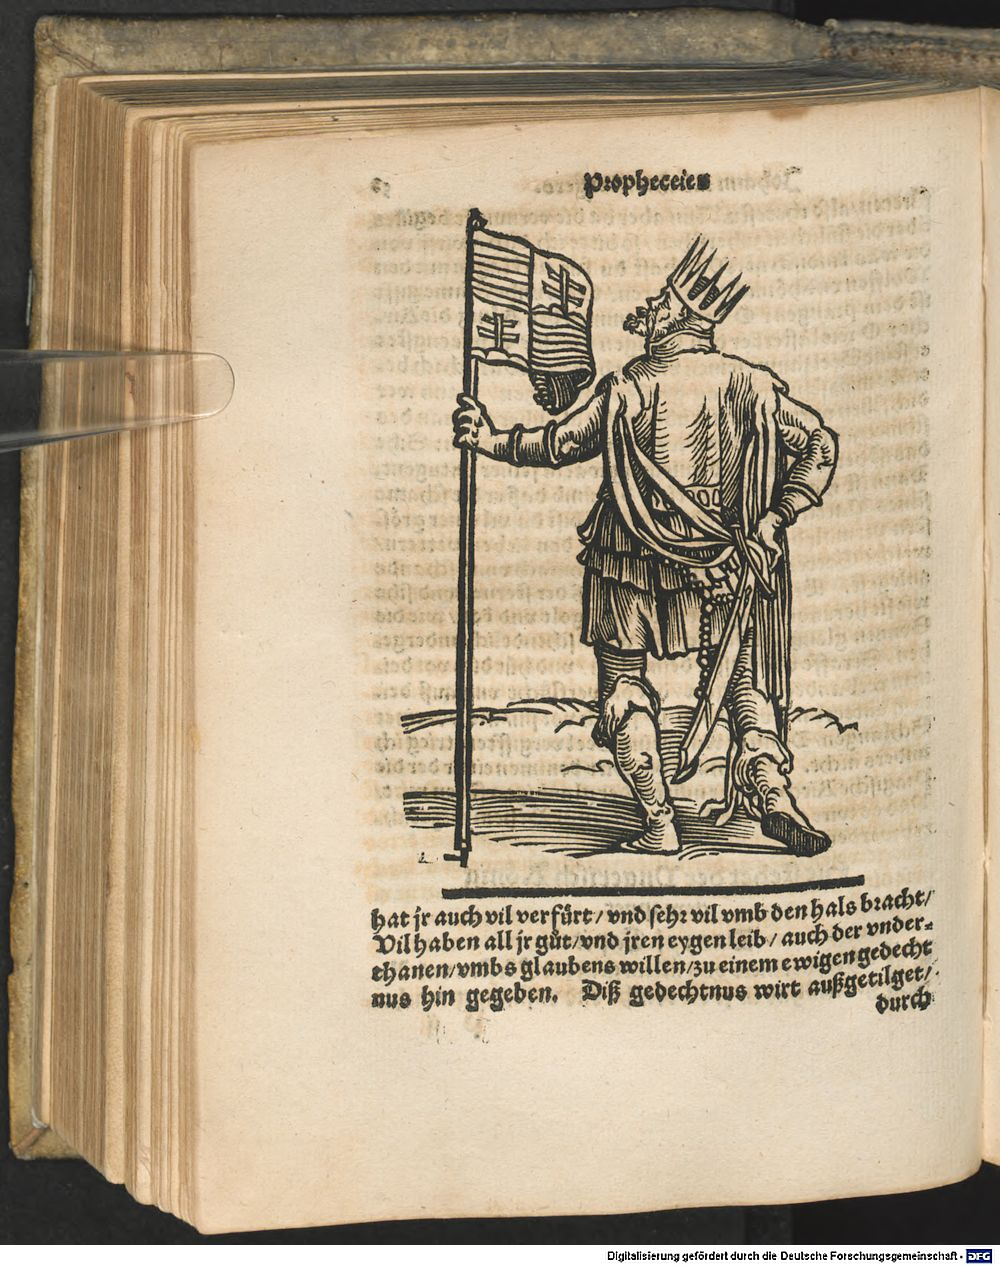 Propheceien
hat jr auch vil verfürt / vnd sehr vil vmb den hals bracht /
Vil haben all jr gůt / vnd jren eygen leib / auch der vnder-
thanen / vmbs glaubens willen / zu einem ewigen gedecht
nus hin gegeben. Diß gedechtnus wirt außgetilget /
durch
Digitalisierung gefördert durch die Deutsche Forschungsgemeinschaft - DFG